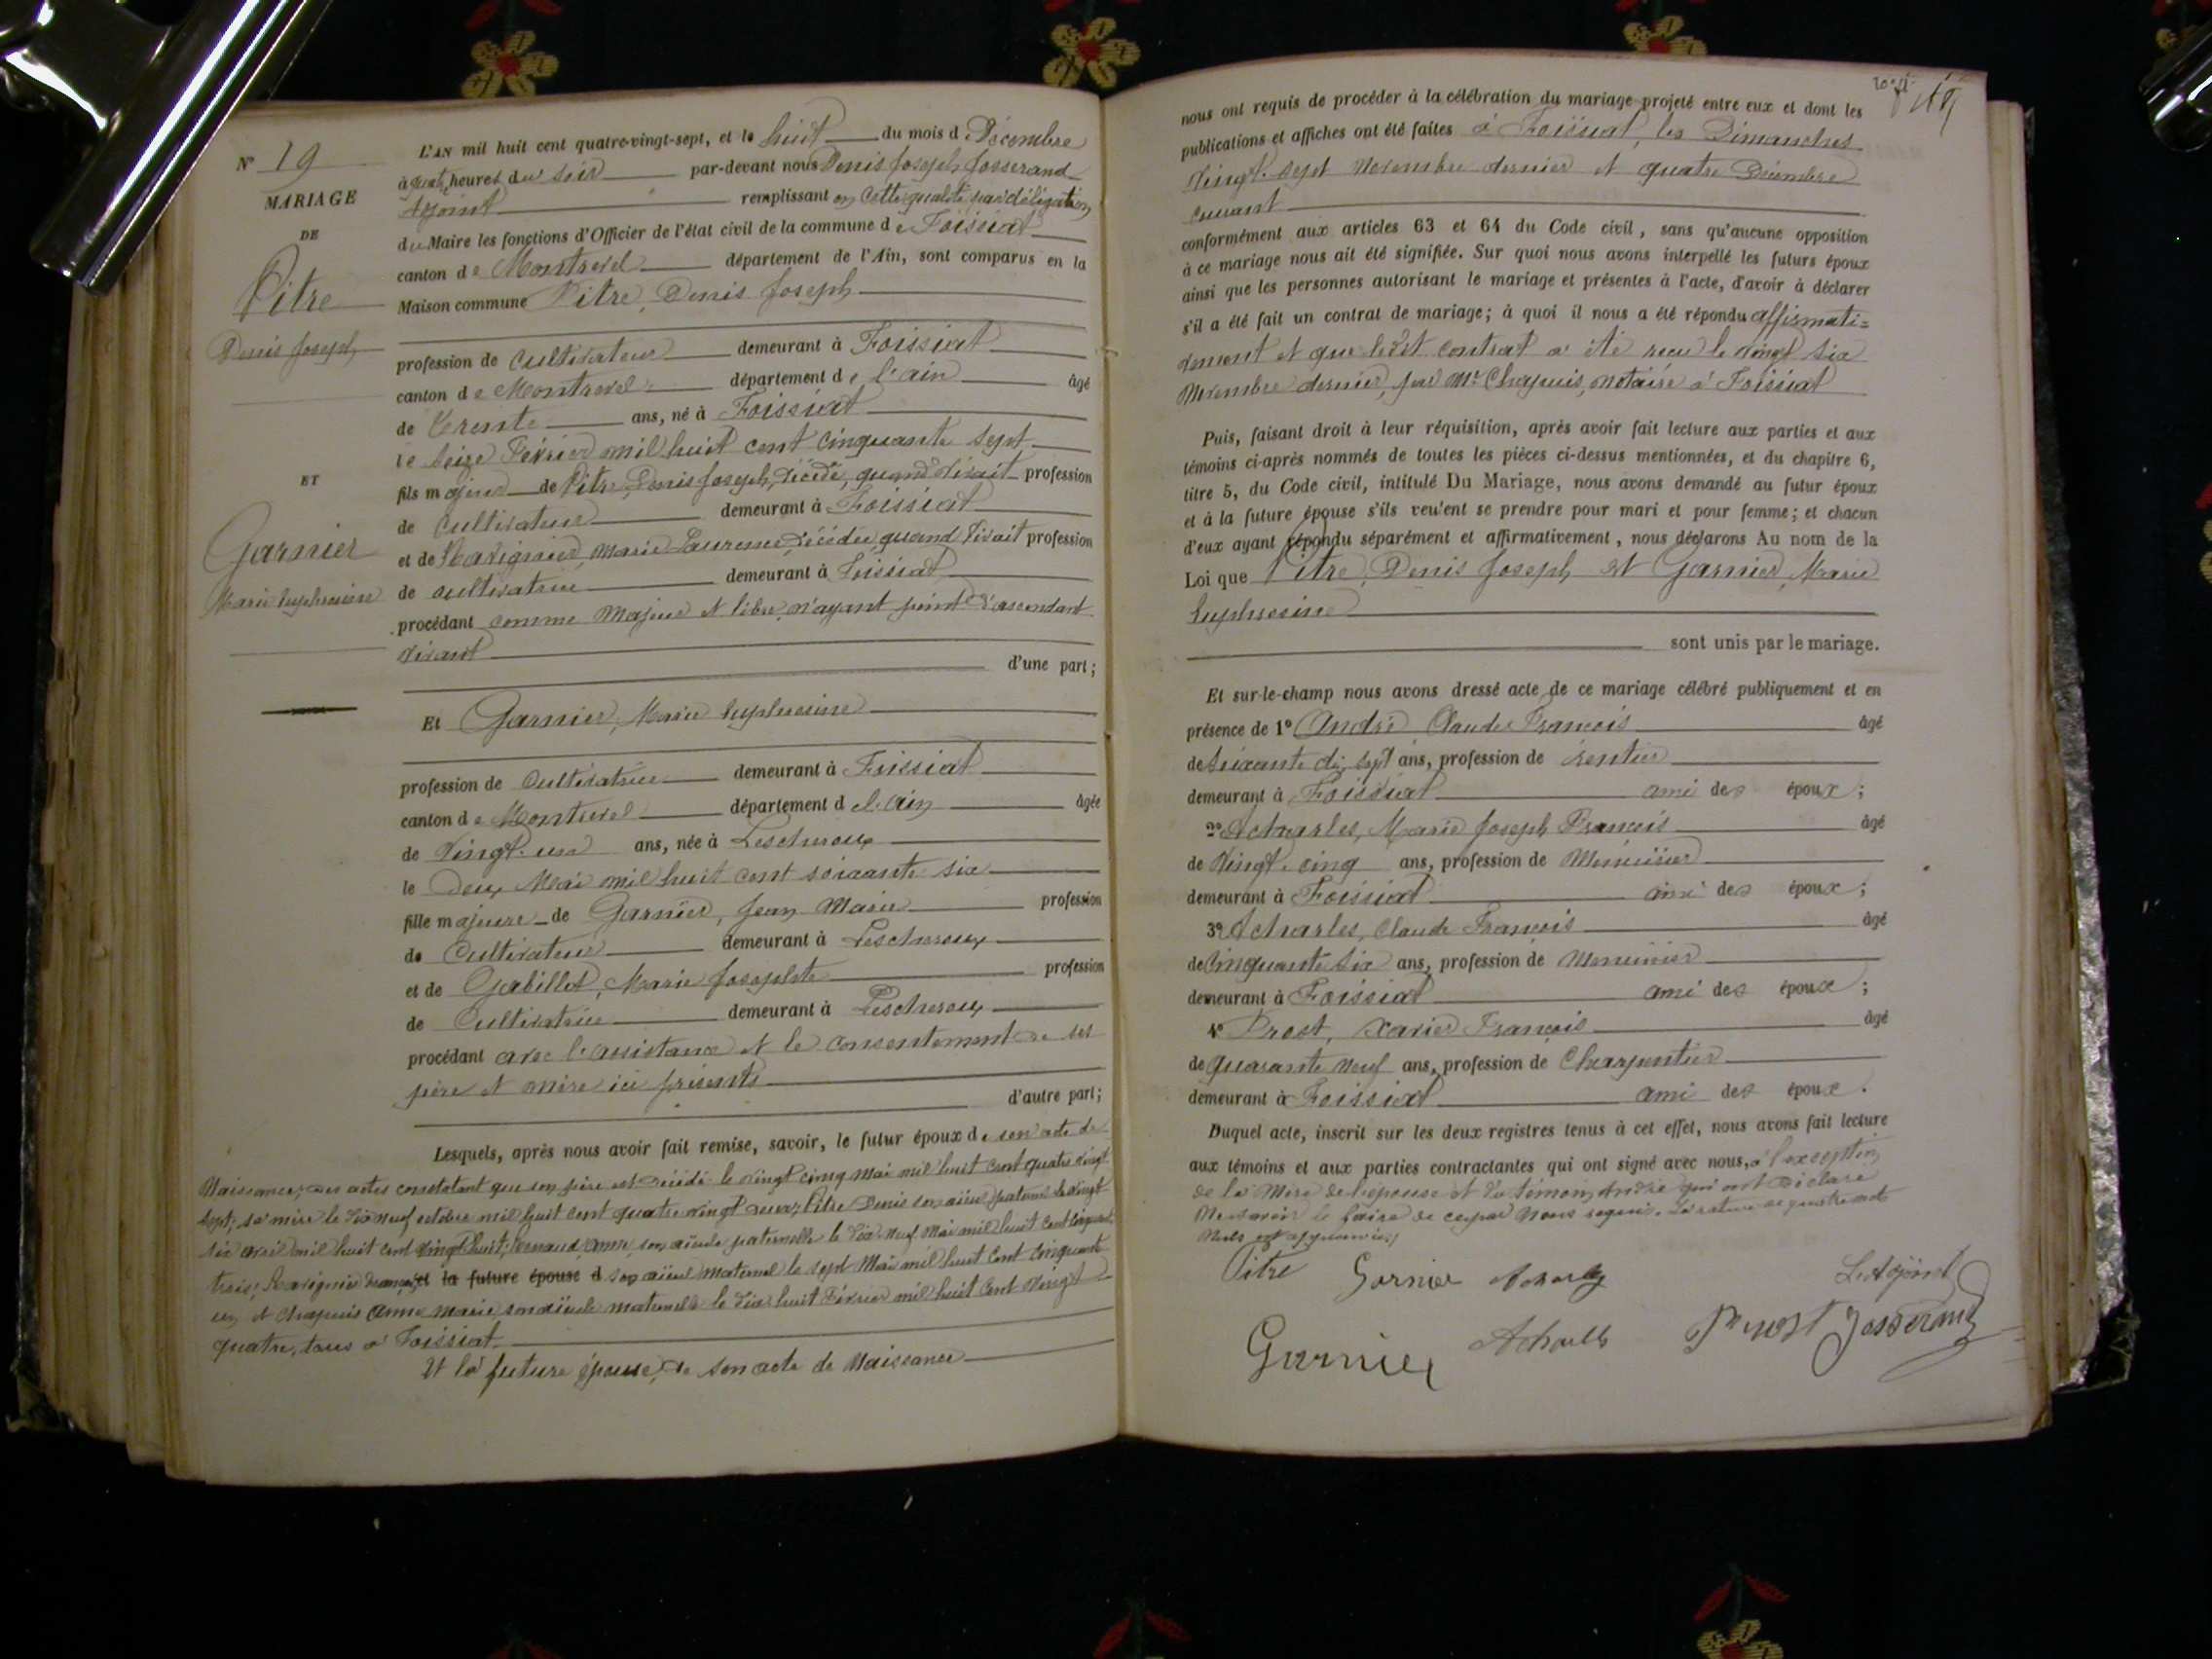 N° 19
MARIAGE
DE
Pitre
Denis Joseph
ET
Garnier
Marie Euphrosine
L'AN mil huit cent quatre-vingt-sept, et le huit du mois de Décembre
à quatre heures du soir par-devant nous Denis Joseph Josserand
Adjoint remplissant en cette qualité par délégation
du Maire les fonctions d'Officier de l'état civil de la commune de Foissiat
canton de Montrevel département de l'Ain, sont comparus en la
Maison commune Pitre, Denis Joseph
profession de cultivateur demeurant à Foissiat
canton de Montrevel département de l'ain âgé
de trente ans, né à Foissiat
le seize Février mil huit cent cinquante sept
fils majeur de Pitre, Denis Joseph, décédé, quand vivait profession
de cultivateur demeurant à Foissiat
et de Ravignier, Marie Laurence décédée, quand vivait profession
de cultivatrice demeurant à Foissiat
procédant comme Majeur et libre, n'ayant point d'ascendant
vivant
d'une part;
Et Garnier, Marie Euphrosine
profession de Cultivatrice demeurant à Foissiat
canton de Montrevel département de l'Ain âgée
de Vingt-un ans, née à Lescheroux
le deux Mai mil huit cent soixante six
fille majeure de Garnier, Jean Marie profession
de Cultivateur demeurant à Lescheroux
et de Gabillet, Marie Josephte profession
de Cultivatrice demeurant à Lescheroux
procédant avec l'assistance et le consentement de ses
père et mère ici présents
d'autre part;
Lesquels, après nous avoir fait remise, savoir, le futur époux de son acte de
Naissance; des actes constatant que son père est décédé le vingt cinq mai mil huit cent quatre vingt
sept; sa mère le dix neuf octobre mil huit cent quatre vingt deux; Pitre Denis son aïeul paternel le vingt
six avril mil huit cent vingt huit; Renaud, Anne, son aïeule paternelle le dix-neuf Mai mil huit cent cinquante
trois; Ravignier et la future épouse d son aïeul maternel le sept Mai mil huit cent cinquante
un et Chapuis Anne Marie son aïeule maternelle le dix huit Février mil huit cent vingt
quatre, tous à Foissiat
Et la future épouse, de son acte de Naissance
nous ont requis de procéder à la célébration du mariage projeté entre eux et dont les
publications et affiches ont été faites à Foissiat, les Dimanches
Vingt-sept Novembre dernier et quatre Décembre
courant
conformément aux articles 63 et 64 du Code civil, sans qu'aucune opposition
à ce mariage nous ait été signifiée. Sur quoi nous avons interpellé les futurs époux
ainsi que les personnes autorisant le mariage et présentes à l'acte, d'avoir à déclarer
s'il a été fait un contrat de mariage; à quoi il nous a été répondu affirmati=
vement et que ledit contrat a été reçu le vingt six
Novembre dernier, par Mr Chapuis, notaire à Foissiat
Puis, faisant droit à leur réquisition, après avoir fait lecture aux parties et aux
témoins ci-après nommés de toutes les pièces ci-dessus mentionnées, et du chapitre 6,
titre 5, du Code civil, intitulé Du Mariage, nous avons demandé au futur époux
et à la future épouse s'ils veulent se prendre pour mari et pour femme; et chacun
d'eux ayant répondu séparément et affirmativement, nous déclarons Au nom de la
Loi que Pitre, Denis Joseph et Garnier, Marie
Euphrosine
sont unis par le mariage.
Et sur-le-champ nous avons dressé acte de ce mariage célébré publiquement et en
présence de 1° André Claude François âgé
de soixante dix sept ans, profession de rentier
demeurant à Foissiat ami des époux;
2° Acharles, Marie Joseph François âgé
de Vingt-cinq ans, profession de Menuisier
demeurant à Foissiat ami des époux;
3° Acharles, Claude François âgé
de Cinquante six ans, profession de Menuisier
demeurant à Foissiat ami des époux;
4° Prost, Xavier François âgé
de quarante neuf ans, profession de Charpentier
demeurant à Foissiat ami des époux.
Duquel acte, inscrit sur les deux registres tenus à cet effet, nous avons fait lecture
aux témoins et aux parties contractantes qui ont signé avec nous, à l'exception
de la Mère de l'épouse et du témoin André qui ont déclaré
Ne savoir le faire de ce par Nous requis. La rature de quatre mots
Nuls est approuvée
Pitre Garnier Acharles L'Adjoint
Garnier Acharles Prost Josserand